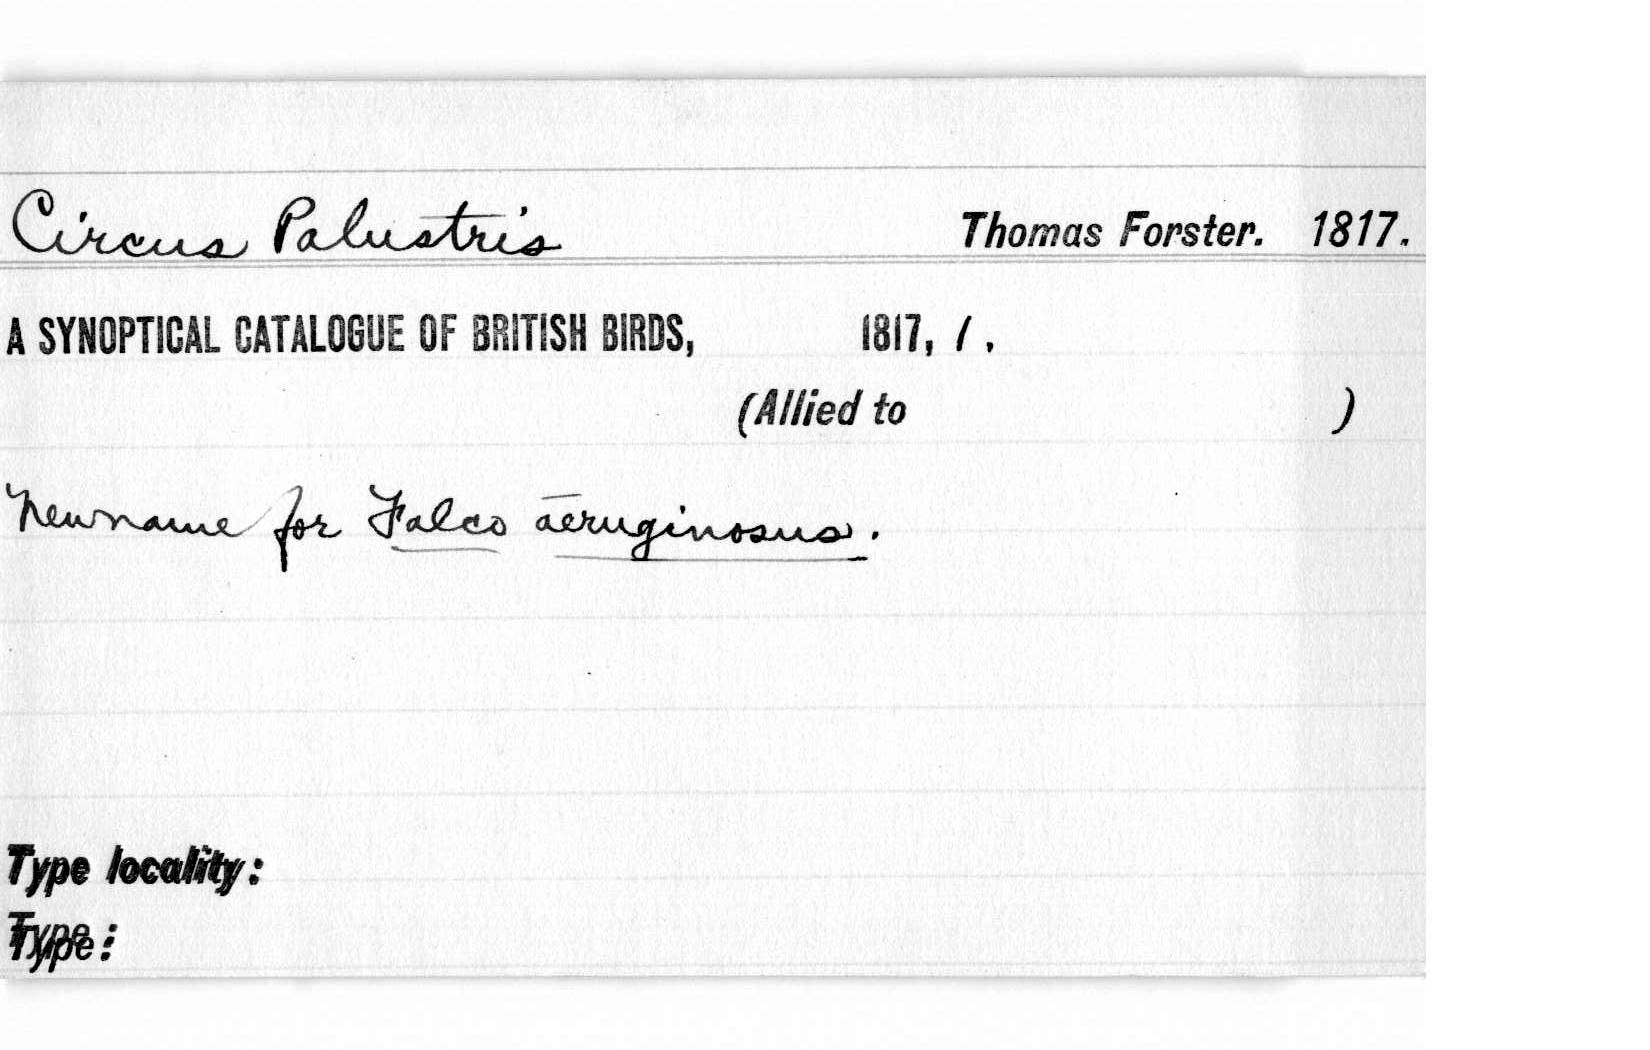 Circus Palustris Thomas Forster. 1817.
A SYNOPTICAL CATALOGUE OF BRITISH BIRDS, 1817, 1.
(Allied to )
New name for Falco aeruginosus.
Type locality:
Type: